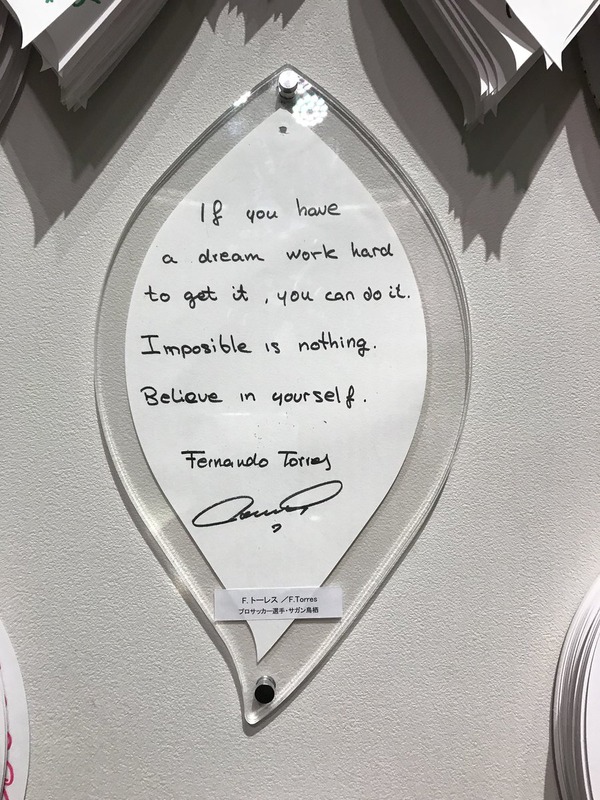 If you have
a dream work hard
to get it , you can do it.
Imposible is nothing.
Believe in yourself.
Fernando Torres
F. トーレス ／F.Torres
プロサッカー選手・サガン鳥栖